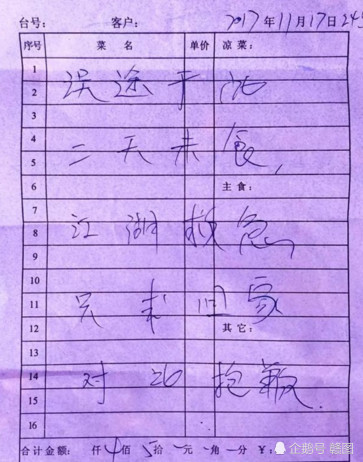 台号： 客户： 2017年11月17日
序号 菜 名 单价 凉菜：
1
2 误途于此
3
4 二天未食，
5
6 主食：
7
8 江湖救急
9
10
11 只求回家
12 其它：
13
14 对此抱歉.
15
16
合计金额： 仟4佰5拾 元 角 分 ￥：
企鹅号